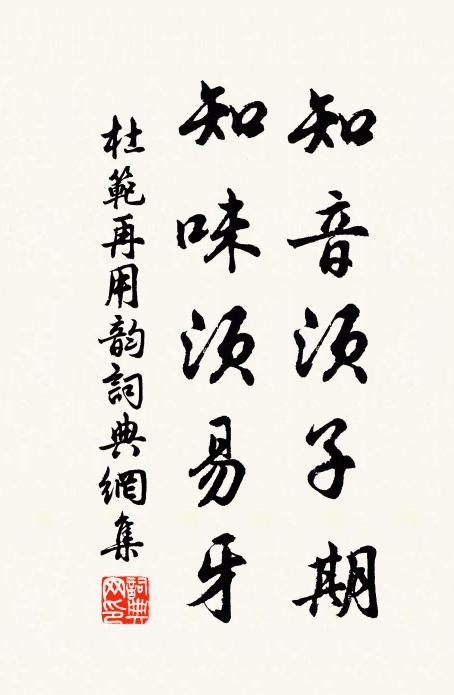 知音須子期
知味須易牙
杜範再用韵詞典網集
詞典網印